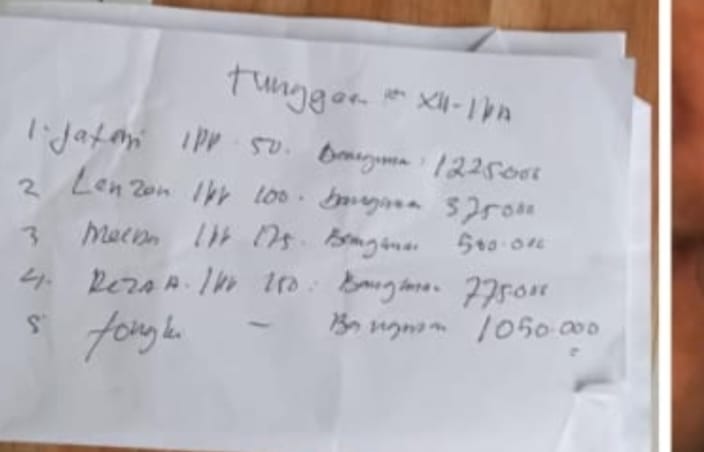 Tunggaan XII-IPA
1. Jafani IPP 50. Bangunan: 1225000
2 Lenzon IPP 100. Bangunan 375000
3 IPP 175. Bangunan 500.000
4. Reza A. IPP 150. Bangunan 775000
5 fongki - Bangunan 1050.000